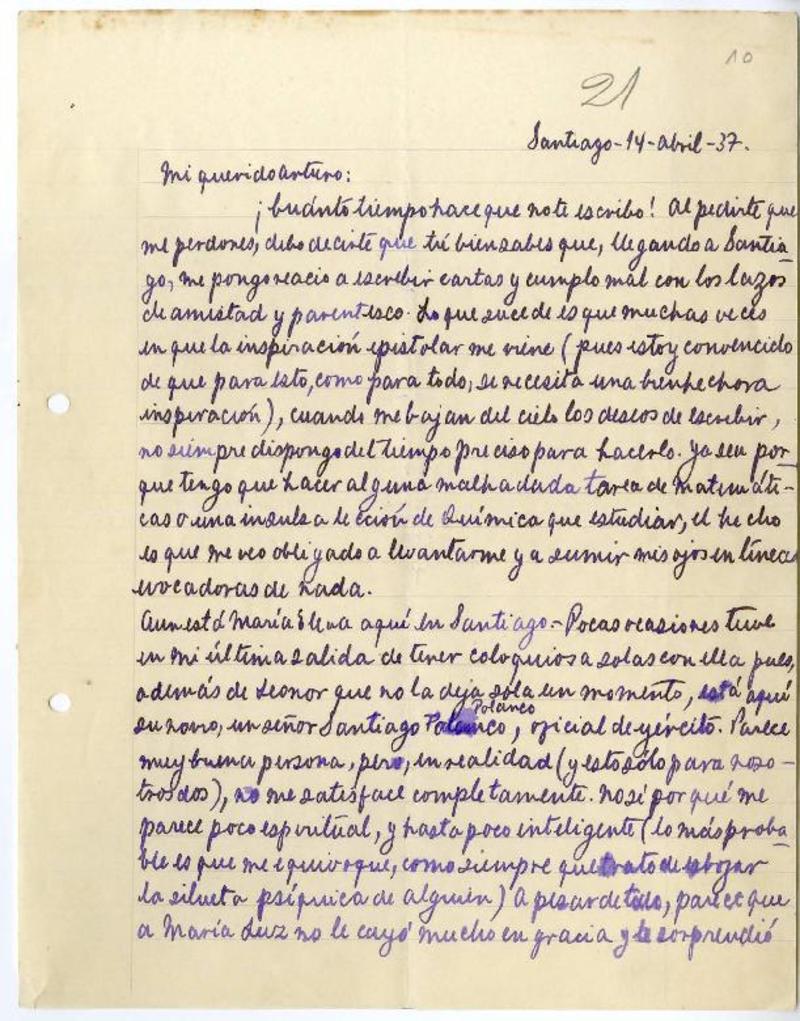 10
21
Santiago-14-abril-37.
Mi querido Arturo:
¡Cuánto tiempo hace que no te escribo! Al pedirte que
me perdones, debo decirte que tú bien sabes que, llegando a Santia-
go, me pongo reacio a escribir cartas y cumplo mal con los lazos
de amistad y parentesco. Lo que sucede es que muchas veces
en que la inspiración epistolar me viene (pues estoy convencido
de que para esto, como para todo, se necesita una bienhechora
inspiración), cuando me bajan del cielo los deseos de escribir,
no siempre dispongo del tiempo preciso para hacerlo. Ya sea por-
que tengo que hacer alguna malhadada tarea de matemáti-
cas o una insulsa lección de Química que estudiar, el hecho
es que me veo obligado a levantarme y a sumir mis ojos en líneas
evocadoras de nada.
Aun está María Elena aquí en Santiago.- Pocas ocasiones tuve
en mi última salida de tener coloquios a solas con ella pues,
además de Leonor que no la deja sola un momento, está aquí
su novio, un señor Santiago Polanco, oficial de ejército. Parece
Polanco
muy buena persona, pero, en realidad (y esto sólo para noso-
tros dos), no me satisface completamente. No sé por qué me
parece poco espiritual, y hasta poco inteligente (lo más proba-
ble es que me equivoque, como siempre que trato de esbozar
la silueta psíquica de alguien) A pesar de todo, parece que
a María Luz no le cayó mucho en gracia y le sorprendió